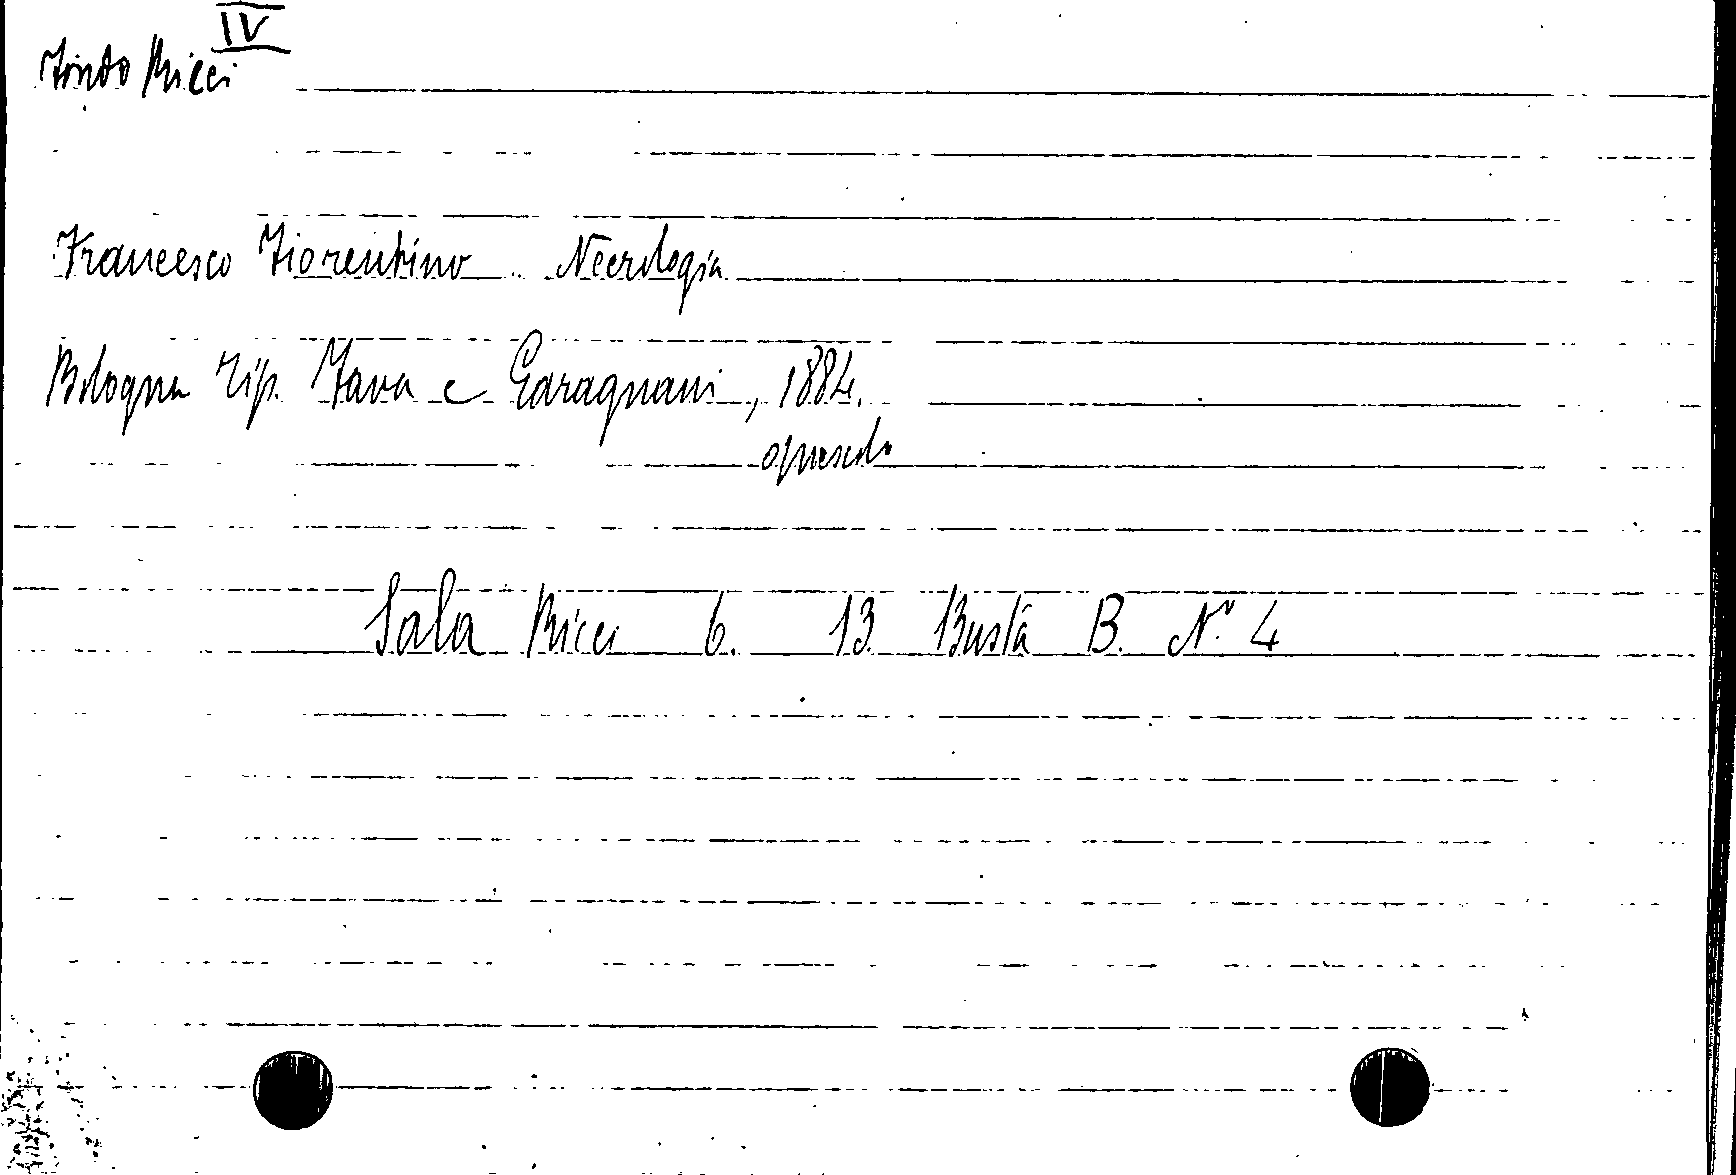 IV
Fondo Ricci
Francesco Fiorentino Necrologia
Bologna Tip. Fava e Garagnani, 1884.
opuscolo
Sala Ricci 6. 13 Busta B. N. 4